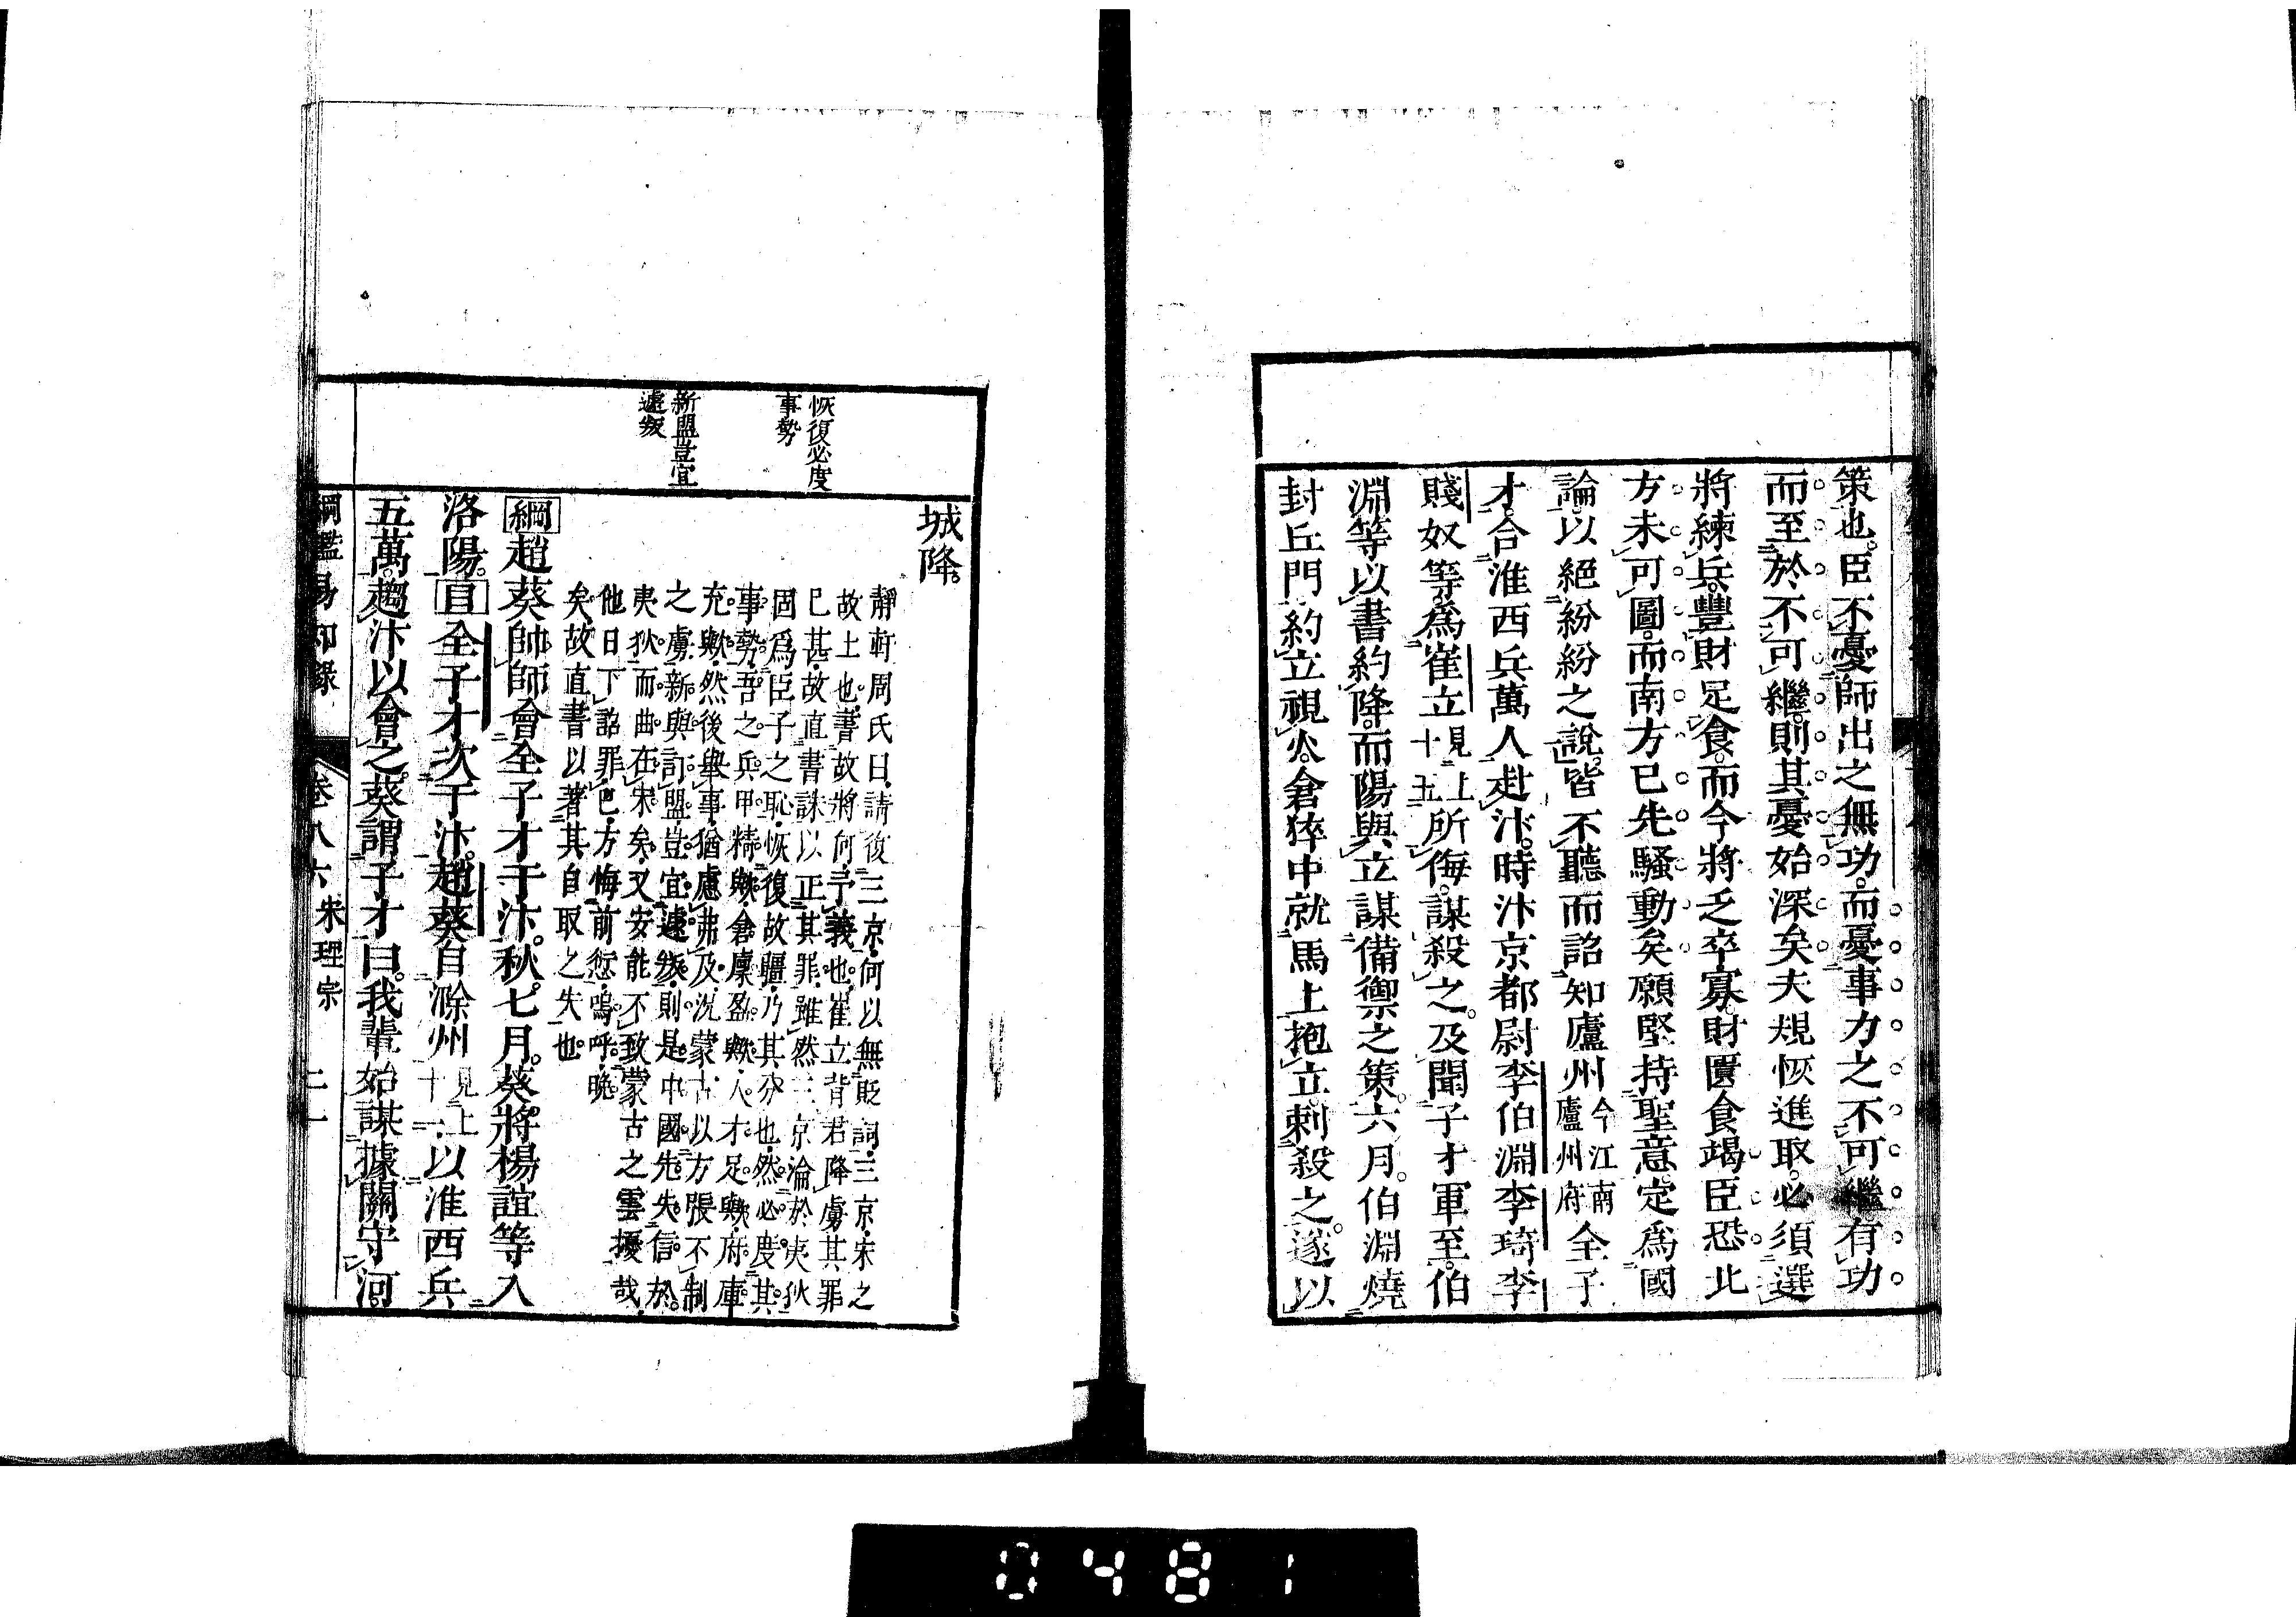 策也。臣不憂師出之無功。而憂事力之不可繼。有功
而至於不可繼。則其憂始深矣夫規恢進取。必須選
將練兵。豐財足食。而今將乏卒寡。財匱食竭臣恐北
方未可圖。而南方已先騷動矣願堅持聖意。定爲國
論。以絕紛紛之說。皆不聽而詔知廬州今江南廬州府全子
才。合淮西兵萬人赴汴。時汴京都尉李伯淵李琦李
賤奴等爲崔立見上十五所侮。謀殺之。及聞子才軍至。伯
淵等以書約降。而陽與立謀備禦之策。六月。伯淵燒
封丘門約立視火。倉猝中就馬上抱立。刺殺之。遂以
城降。
恢復必度
事勢
新盟豈宜
遽叛
靜軒周氏曰。請復三京。何以無貶詞。三京。宋之
故土也。書故將何。予義也。崔立背君降虜其罪
已甚。故直書誅以正其罪。雖然三京淪於夷狄
固爲臣子之恥。恢復故疆。乃其分也。然必度其
事勢。吾之兵甲精歟。倉廩盈歟。人才足歟。府庫
充歟。然後舉事。猶慮弗及。況蒙古以方張不制
之虜。新與訂盟。豈宜遽叛。則是中國先失信於
夷狄而曲在宋矣。又安能不致蒙古之雲擾哉。
他日下詔罪己。方悔前愆。嗚呼。晚
矣。故直書以著其自取之失也。
綱趙葵帥師會全子才于汴。秋。七月。葵將楊誼等入
洛陽。目全子才次于汴。趙葵自滁州見上十一以淮西兵
五萬。趨汴以會之。葵謂子才曰。我輩始謀據關守河。
綱鑑易知錄 卷八六 宋理宗 二一
0481